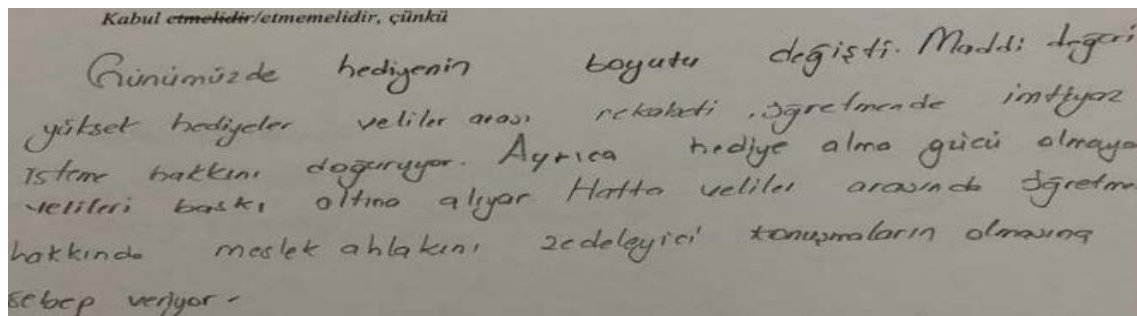 Kabul etmelidir/etmemelidir, çünkü
Günümüzde hediyenin boyutu değişti. Maddi değeri
yükset hediyeler veliler arası rekabeti, öğretmende imtiyaz
isteme hakkını doğuruyor. Ayrıca hediye alma gücü olmaya
velileri baskı altına alıyor Hatta veliler arasında öğretme
hakkında meslek ahlakını zedeleyici konuşmaların olmasına
sebep veriyor.